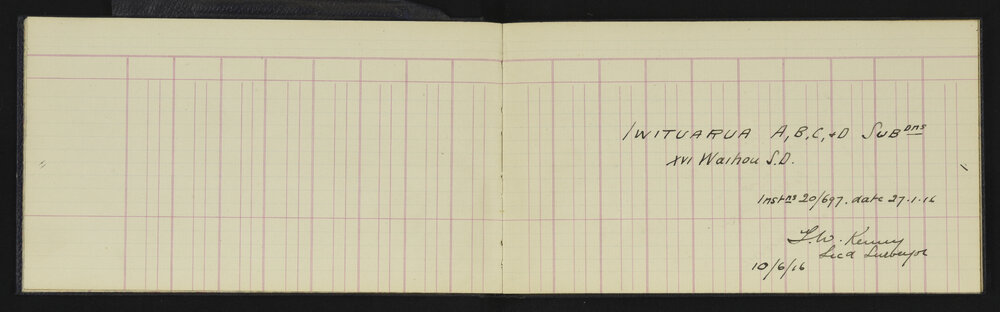 IWITUARUA A, B, C, + D SUBDNS
XVI Waihou S.D.
Instns 20/697. date 27.1.16
Kenny
Licd Surveyor
10/6/16